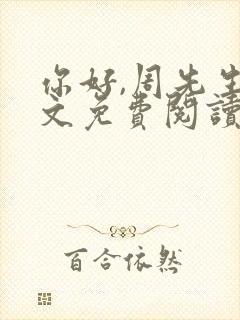 你好,周先生
文免费阅讀
百合依然